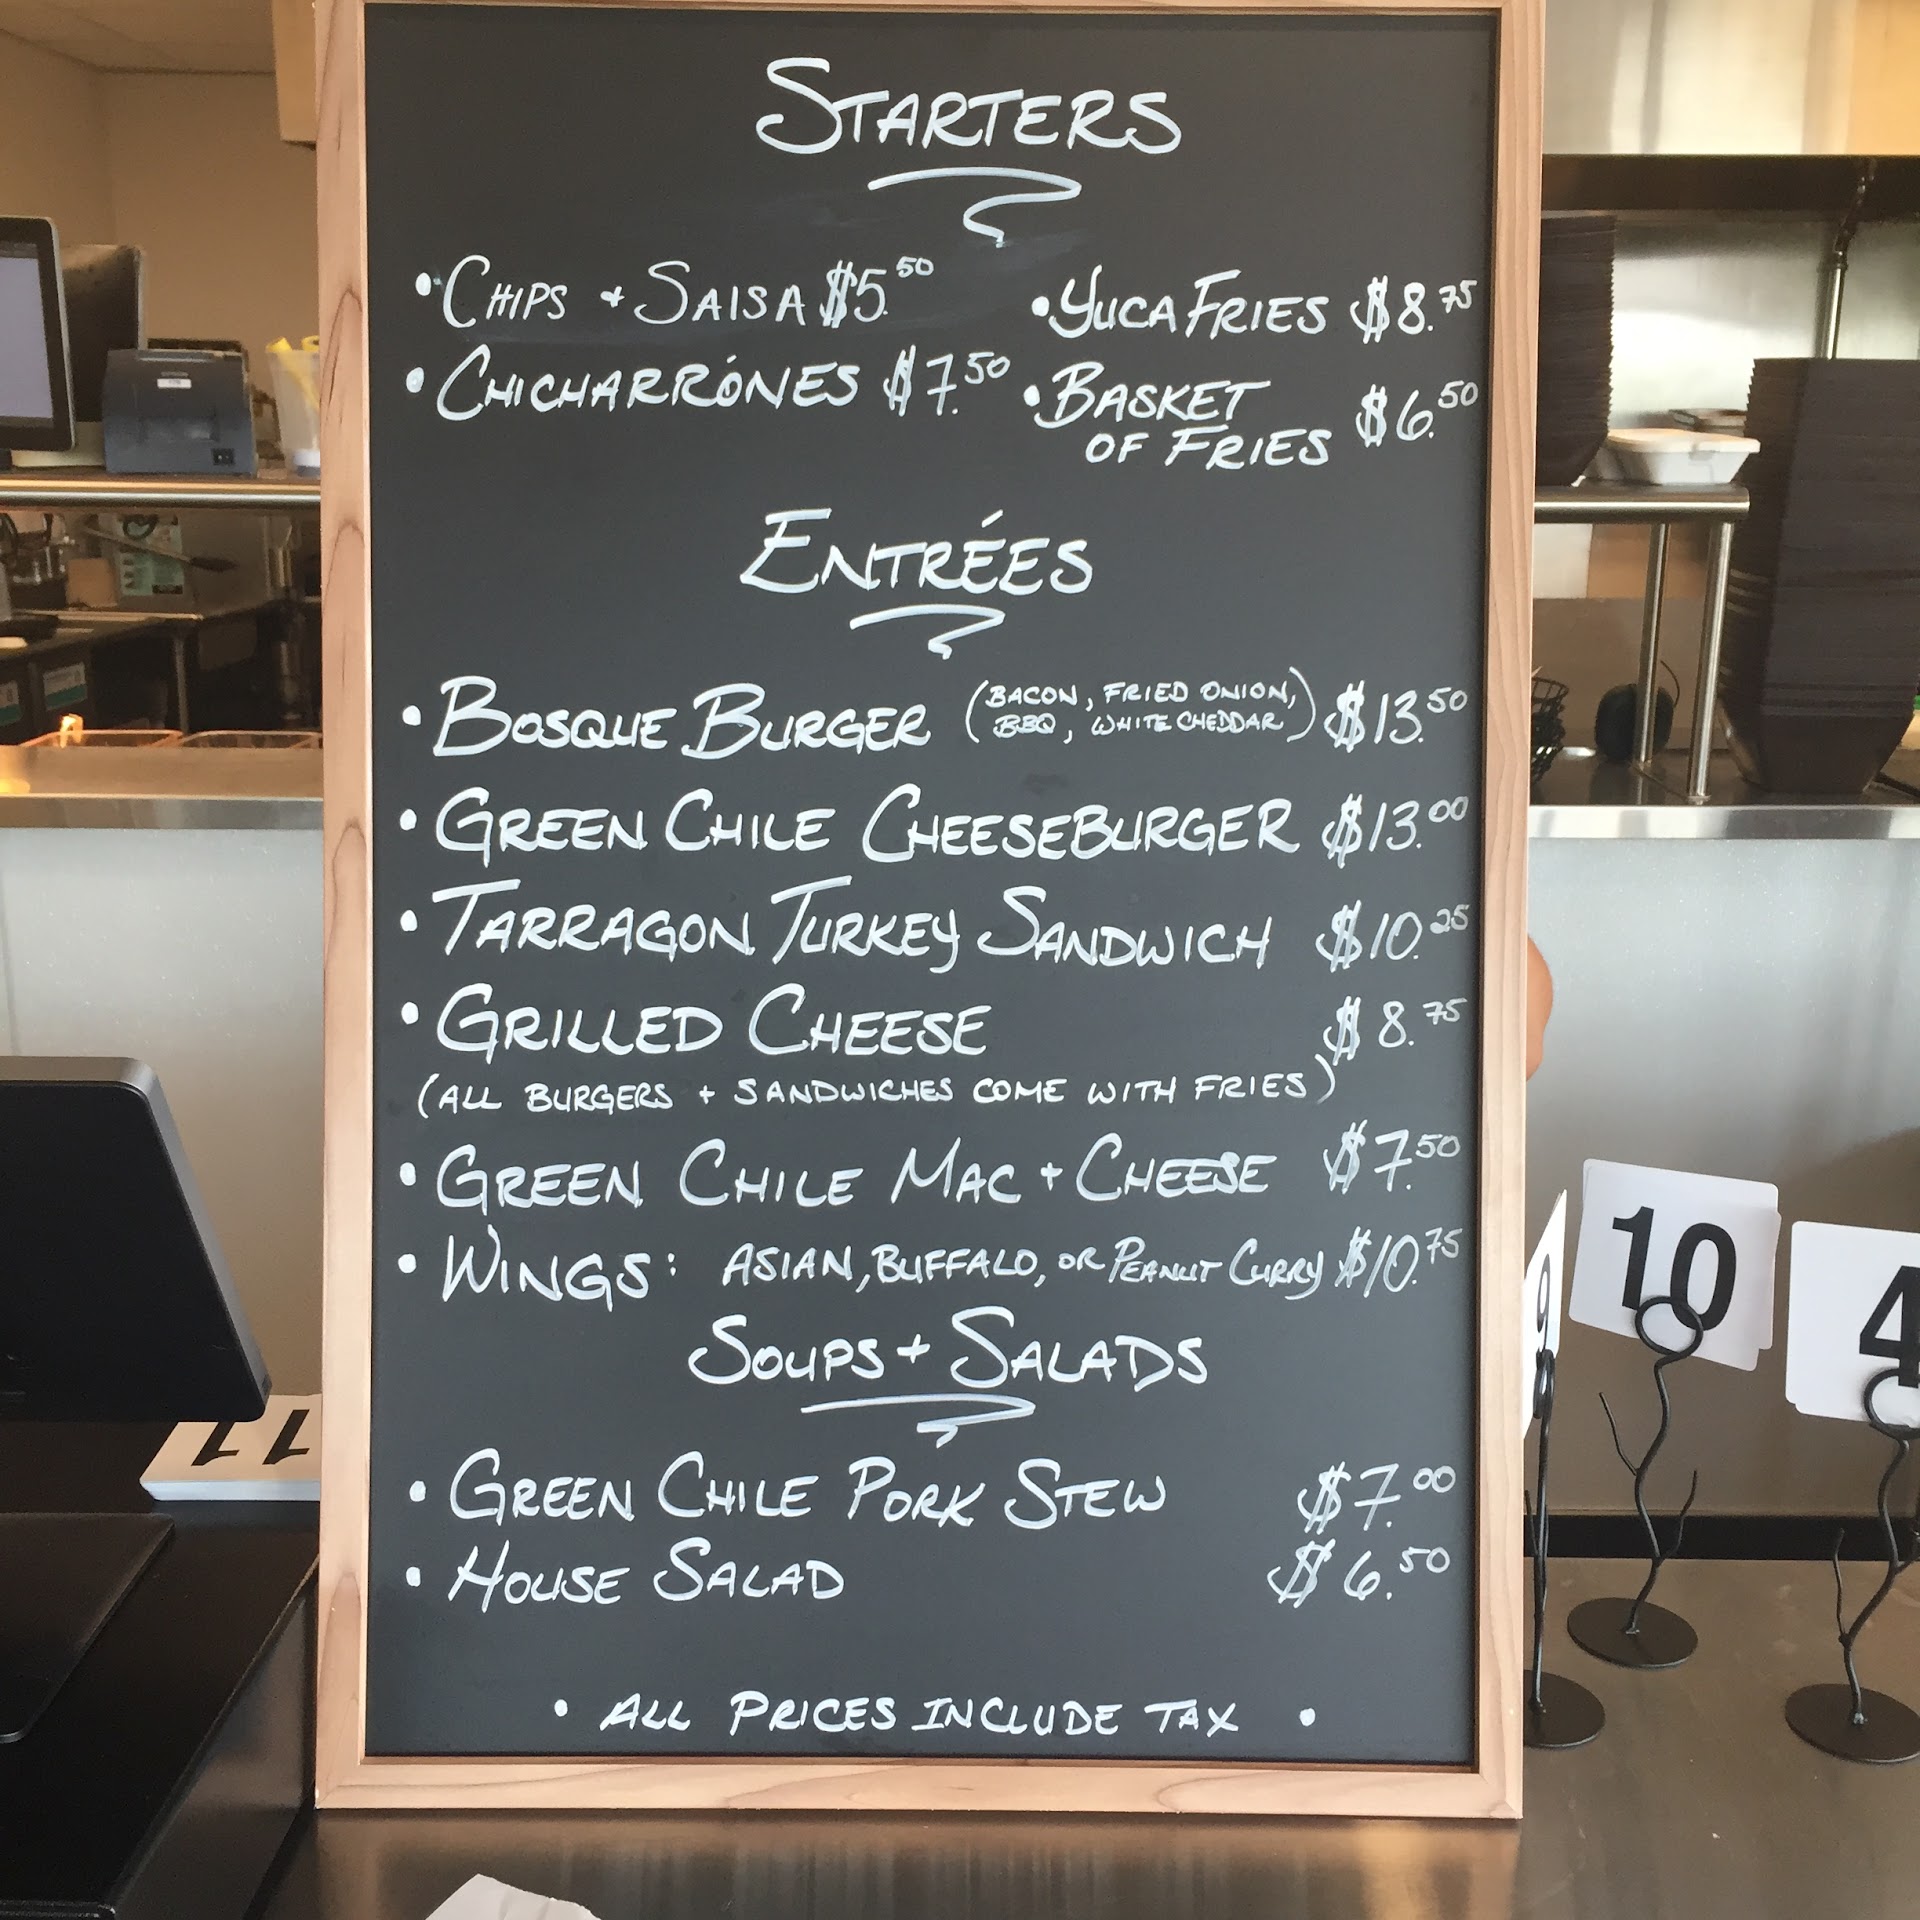 STARTERS
• CHIPS + SALSA $5.50
• YUCA FRIES $8.75
• CHICHARRÓNES $7.50
• BASKET
OF FRIES $6.50
ENTRÉES
• BOSQUE BURGER (BACON, FRIED ONION, BBQ, WHITE CHEDDAR) $13.50
• GREEN CHILE CHEESEBURGER $13.00
• TARRAGON TURKEY SANDWICH $10.25
• GRILLED CHEESE $8.75
(ALL BURGERS + SANDWICHES COME WITH FRIES)
• GREEN CHILE MAC + CHEESE $7.50
• WINGS: ASIAN, BUFFALO, OR PEANUT CURRY $10.75
SOUPS + SALADS
• GREEN CHILE PORK STEW $7.00
• HOUSE SALAD $6.50
• ALL PRICES INCLUDE TAX •
9
10
4
11